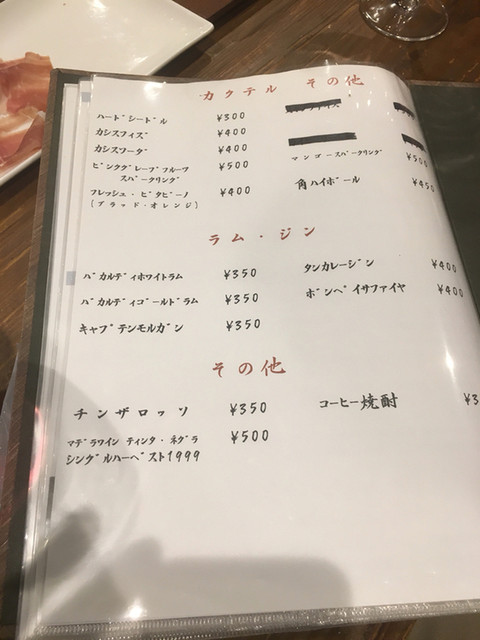 カクテル その他
ハードシードル ¥300
カシスフィズ ¥400
カシスソーダ ¥400
ピンクグレープフルーツ
スパークリング ¥500
フレッシュ・ビタビーノ ¥400
(ブラッド・オレンジ)
マンゴースパークリング ¥500
角ハイボール ¥450
ラム・ジン
バカルディホワイトラム ¥350
バカルディゴールドラム ¥350
キャプテンモルガン ¥350
タンカレージン ¥400
ボンベイサファイヤ ¥400
その他
チンザロッソ ¥350
マデラワイン ティンタ・ネグラ ¥500
シングルハーベスト1999
コーヒー焼酎